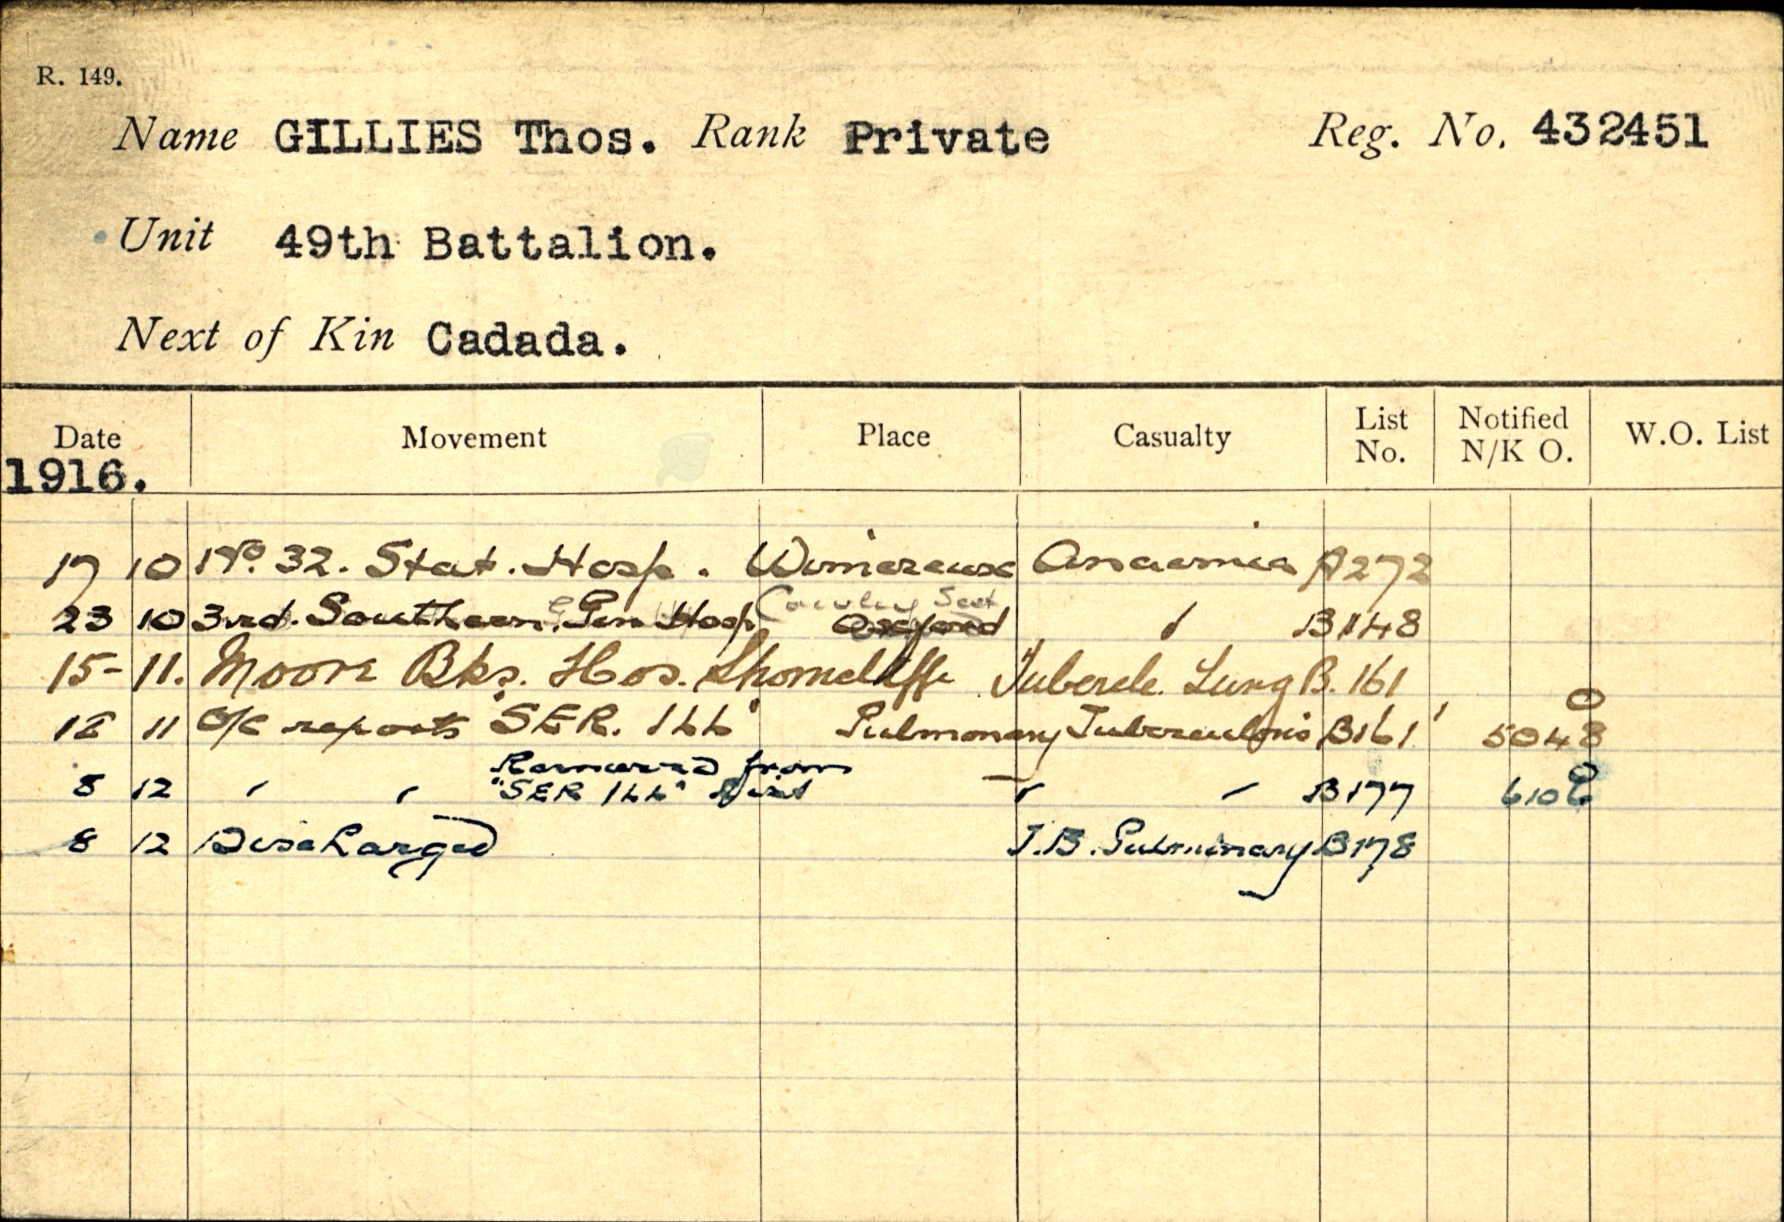 R. 149.
Name GILLIES Thos. Rank Private Reg. No. 432451
Unit 49th Battalion.
Next of Kin Cadada.
Date Movement Place Casualty List No. Notified N/K O. W.O. List
1916.
17 10 No 32. Stat. Hosp. Wimereux Anaemia A272
Cowley Sect
23 10 3rd. Southern Gen Hosp Oxford " B148
15- 11. Moore Bks. Hos. Shorncliffe Tubercle Lung B. 161
18 11 O/C reports "SER. ILL" Pulmonary Tuberculosis B161 5048 O
Removed from
8 12 " " "SER ILL" List " " B177 610
8 12 Discharged T.B. Pulmonary B178